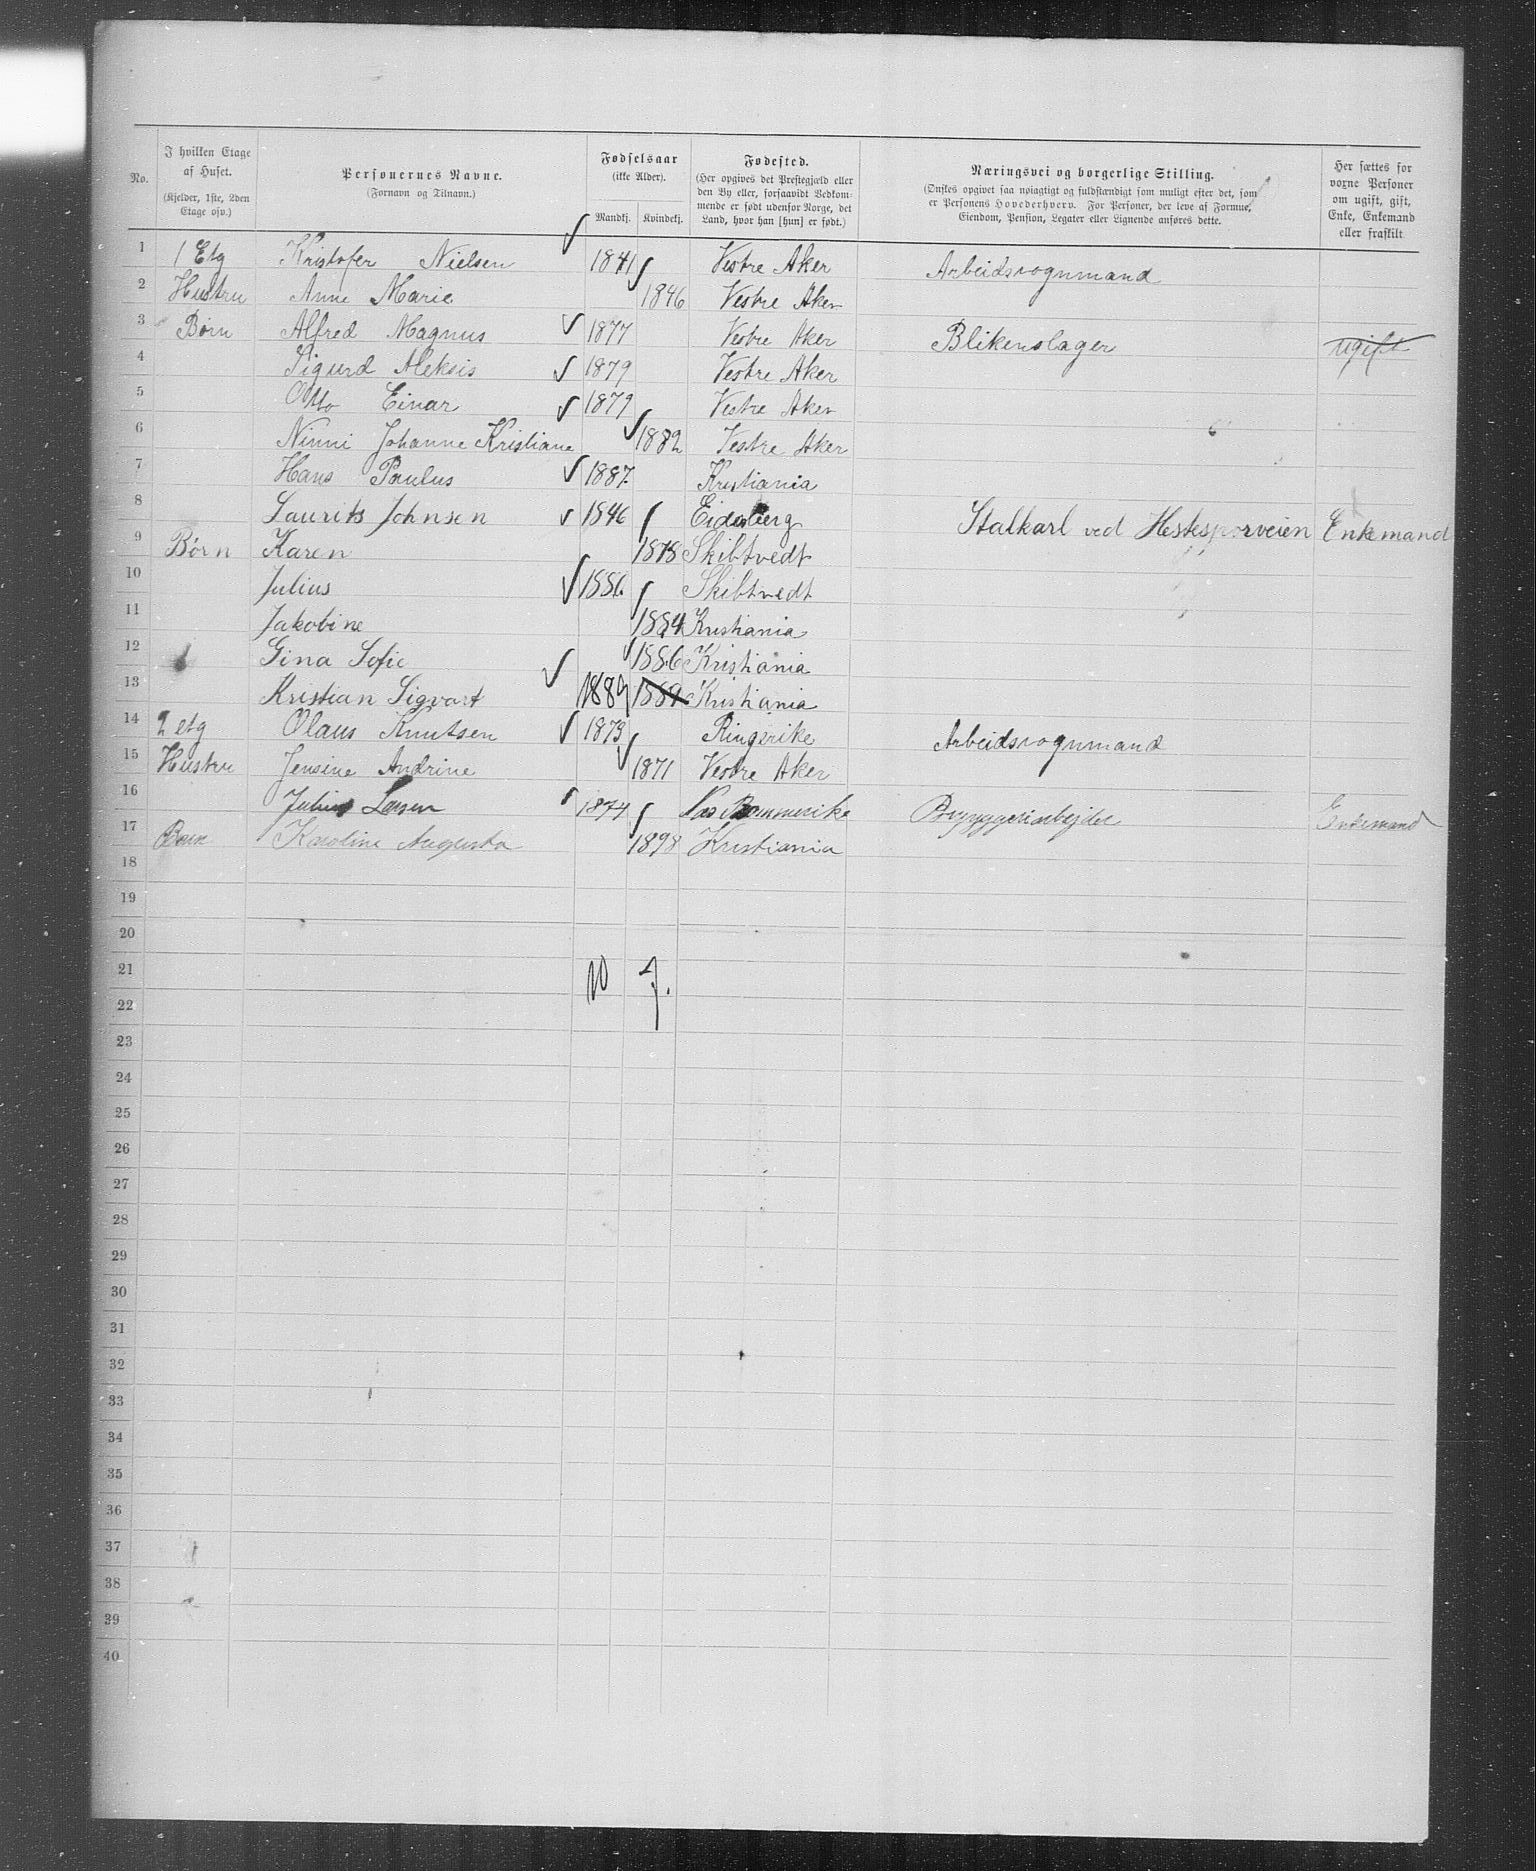 No. I hvilken Etage af Huset. (Kjelder, 1ste, 2den Etage osv.) Personernes Navne. (Fornavn og Tilnavn.) Fødselsaar (ikke Alder). Mandkj. Kvindekj. Fødested. (Her opgives det Prestegjæld eller den By eller, forsaavidt Vedkommende er født udenfor Norge, det Land, hvor han [hun] er født.) Næringsvei og borgerlige Stilling. (Ønskes opgivet saa nøiagtigt og fuldstændigt som muligt efter det, som er Personens Hovederhverv. For Personer, der leve af Formue, Eiendom, Pension, Legater eller Lignende anføres dette. Her sættes for voxne Personer om ugift, gift, Enke, Enkemand eller fraskilt
1 1 Etg Kristofer Nielsen 1841 Vestre Aker Arbeidsvognmand
2 Hustru Anne Marie 1846 Vestre Aker
3 Børn Alfred Magnus 1877 Vestre Aker Blikenslager ugift
4 Sigurd Aleksis 1879 Vestre Aker
5 Otto Einar 1879 Vestre Aker
6 Ninni Johanne Kristiane 1882 Vestre Aker
7 Hans Paulus 1887. Kristiania
8 Laurits Johnsen 1846 Eidsberg Stalkarl ved Hestesporveien Enkemand
9 Børn Karen 1878 Skibtvedt
10 Julius 1880 Skibtvedt
11 Jakobine 1884 Kristiania
12 Gina Sofie 1886 Kristiania
13 Kristian Sigvart 1889 1889 Kristiania
14 2 etg Olaus Knutsen 1873 Ringerike Arbeidsvognmand
15 Hustru Jensine Andrine 1871 Vestre Aker
16 Julius Larsen 1874 Nes Rommerike Bryggeriarbejder Enkemand
17 Barn Karoline Augusta 1898 Kristiania
18
19
20
21 10 7.
22
23
24
25
26
27
28
29
30
31
32
33
34
35
36
37
38
39
40